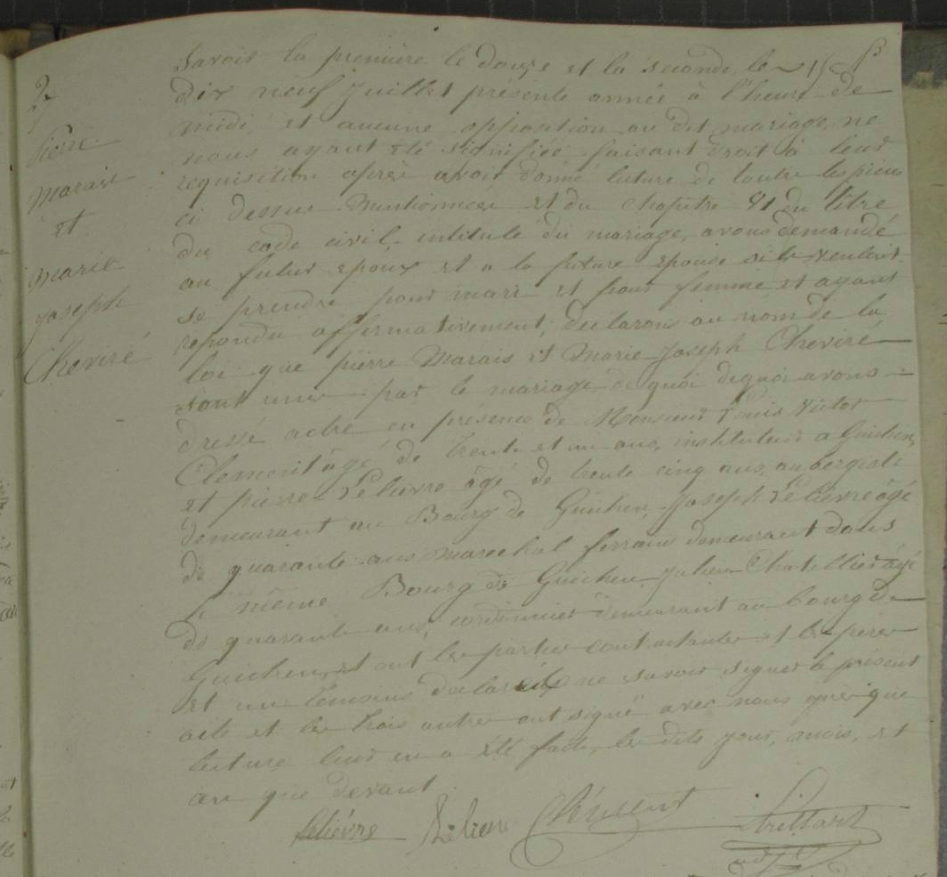 savoir la première le douze et la seconde le
dix neuf juillet présente année à l'heure de
midi, et aucune opposition au dit mariage ne
nous ayant été signifiée faisant droit à leur
requisition après avoir donné lecture de toutes les pièces
ci dessus mentionnées et du chapitre VI du titre
du code civil, intitulé du mariage, avons demandé
au futur epoux et a la future epouse s'ils veulent
se prendre pour mari et pour femme et ayant
repondu affirmativement, declarons au nom de la
loi que pierre Marais et Marie Joseph Cheviré
sont unis par le mariage de quoi dequoi avons
dressé acte en presence de Monsieur Louis Victor
Clement âgé de trente et un ans, instituteur a Guichen,
et pierre Lelievre âgé de trente cinq ans, aubergiste
demeurant au Bourg de Guichen, Joseph Lelievre âgé
de quarante ans marechal ferrant demeurant dans
le même Bourg de Guichen Julien Chatellier âgé
de quarante ans, cordonnier demeurant au bourg de
Guichen, et ont les parties contractantes et les peres
et un temoins declaré ne savoir signer le présent
acte et les trois autres ont signé avec nous après que
lecture leur en a été faite, les dits jour, mois, et
an que devant
2
Pierre
Marais
et
Marie
Joseph
Cheviré
Lelièvre Clément